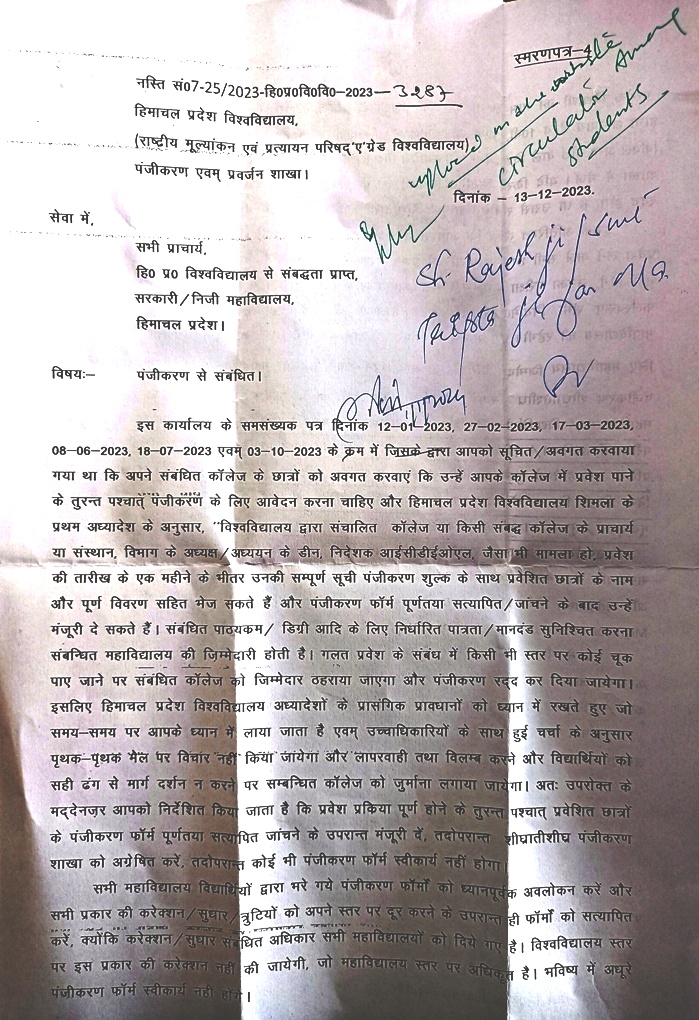 स्मरणपत्र-4
नस्ति सं07-25/2023-हि0प्र0वि0वि0-2023-3287
हिमाचल प्रदेश विश्वविद्यालय,
(राष्ट्रीय मूल्यांकन एवं प्रत्यायन परिषद्'ए'ग्रेड विश्वविद्यालय)
पंजीकरण एवम् प्रवर्जन शाखा।
upload in the website
circulation among
students
दिनांक - 13-12-2023.
सेवा में,
सभी प्राचार्य,
हि0 प्र0 विश्वविद्यालय से संबद्धता प्राप्त,
सरकारी/निजी महाविद्यालय,
हिमाचल प्रदेश।
Sh. Rajesh ji
विषयः- पंजीकरण से संबंधित।
इस कार्यालय के समसंख्यक पत्र दिनांक 12-01-2023, 27-02-2023, 17-03-2023,
08-06-2023, 18-07-2023 एवम् 03-10-2023 के क्रम में जिसके द्वारा आपको सूचित/अवगत करवाया
गया था कि अपने संबंधित कॉलेज के छात्रों को अवगत करवाएं कि उन्हें आपके कॉलेज में प्रवेश पाने
के तुरन्त पश्चात् पंजीकरण के लिए आवेदन करना चाहिए और हिमाचल प्रदेश विश्वविद्यालय शिमला के
प्रथम अध्यादेश के अनुसार, "विश्वविद्यालय द्वारा संचालित कॉलेज या किसी संबद्ध कॉलेज के प्राचार्य
या संस्थान, विभाग के अध्यक्ष/अध्ययन के डीन, निदेशक आईसीडीईओएल, जैसा भी मामला हो, प्रवेश
की तारीख के एक महीने के भीतर उनकी सम्पूर्ण सूची पंजीकरण शुल्क के साथ प्रवेशित छात्रों के नाम
और पूर्ण विवरण सहित भेज सकते हैं और पंजीकरण फॉर्म पूर्णतया सत्यापित/जांचने के बाद उन्हें
मंजूरी दे सकते हैं। संबंधित पाठ्यकम/ डिग्री आदि के लिए निर्धारित पात्रता/मानदंड सुनिश्चित करना
संबन्धित महाविद्यालय की ज़िम्मेदारी होती है। गलत प्रवेश के संबंध में किसी भी स्तर पर कोई चूक
पाए जाने पर संबंधित कॉलेज को जिम्मेदार ठहराया जाएगा और पंजीकरण रद्द कर दिया जायेगा।
इसलिए हिमाचल प्रदेश विश्वविद्यालय अध्यादेशों के प्रासंगिक प्रावधानों को ध्यान में रखते हुए जो
समय-समय पर आपके ध्यान में लाया जाता है एवम् उच्चाधिकारियों के साथ हुई चर्चा के अनुसार
पृथक-पृथक मैल पर विचार नहीं किया जायेगा और लापरवाही तथा विलम्ब करने और विद्यार्थियों को
सही ढंग से मार्ग दर्शन न करने पर सम्बन्धित कॉलेज को जुर्माना लगाया जायेगा। अतः उपरोक्त के
मद्देनज़र आपको निर्देशित किया जाता है कि प्रवेश प्रकिया पूर्ण होने के तुरन्त पश्चात् प्रवेशित छात्रों
के पंजीकरण फॉर्म पूर्णतया सत्यापित जांचने के उपरान्त मंजूरी दें, तदोपरान्त शीघ्रातीशीघ्र पंजीकरण
शाखा को अग्रेषित करें, तदोपरान्त कोई भी पंजीकरण फॉर्म स्वीकार्य नहीं होगा।
सभी महाविद्यालय विद्यार्थियों द्वारा भरे गये पंजीकरण फॉर्मों को ध्यानपूर्वक अवलोकन करें और
सभी प्रकार की करेक्शन/सुधार/त्रुटियों को अपने स्तर पर दूर करने के उपरान्त ही फॉर्मों को सत्यापित
करें, क्योंकि करेक्शन/सुधार संबंधित अधिकार सभी महाविद्यालयों को दिये गए है। विश्वविद्यालय स्तर
पर इस प्रकार की करेक्शन नहीं की जायेगी, जो महाविद्यालय स्तर पर अधिकृत है। भविष्य में अधूरे
पंजीकरण फॉर्म स्वीकार्य नही होंगे।